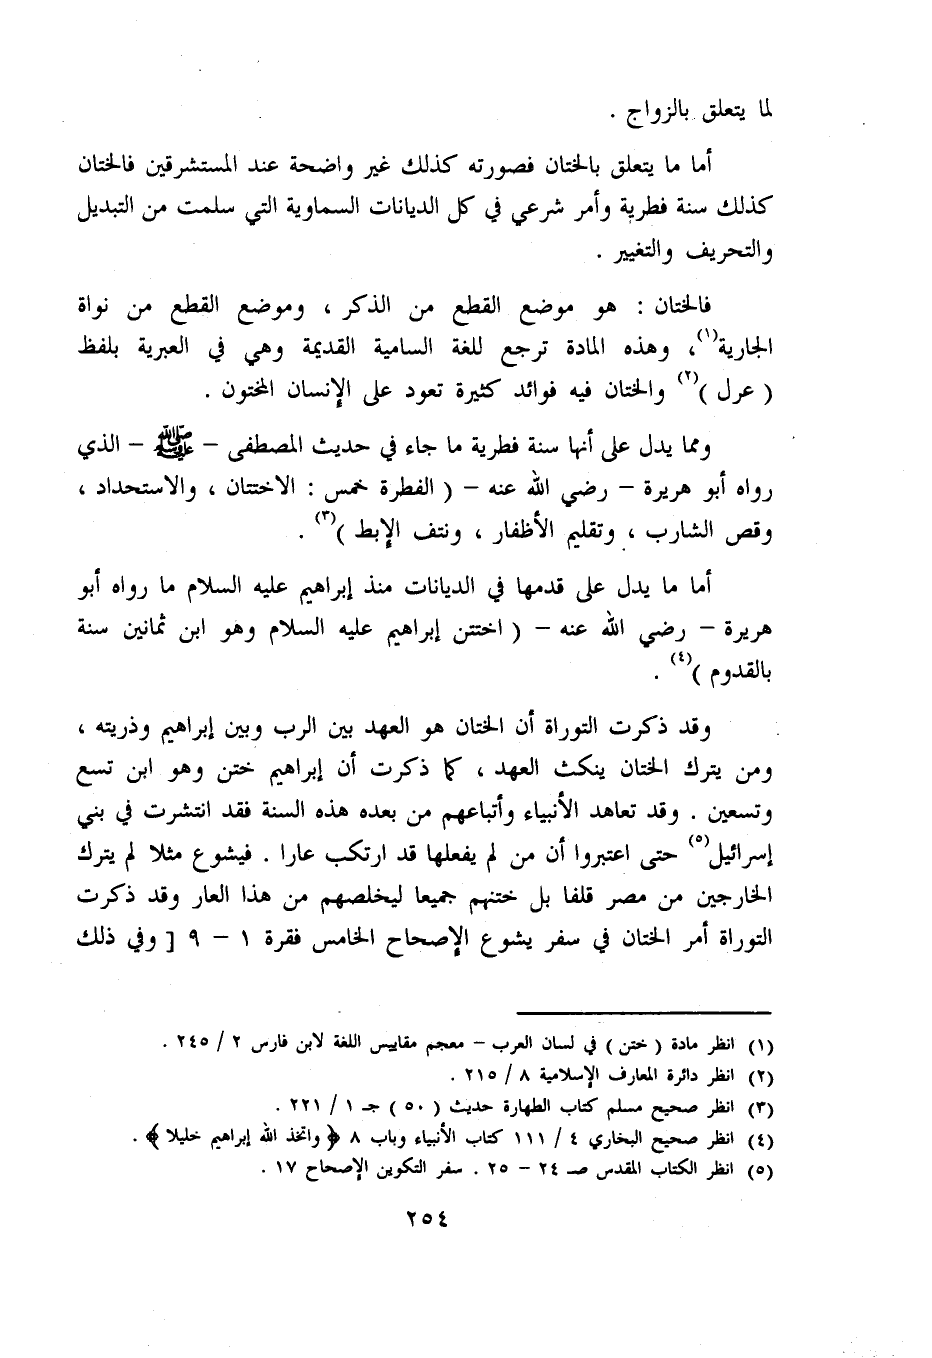 لما يتعلق بالزواج .
أما ما يتعلق بالختان فصورته كذلك غير واضحة عند المستشرقين فالختان
كذلك سنة فطرية وأمر شرعي في كل الديانات السماوية التي سلمت من التبديل
والتحريف والتغيير .
فالختان : هو موضع القطع من الذكر ، وموضع القطع من نواة
الجارية(١)، وهذه المادة ترجع للغة السامية القديمة وهي في العبرية بلفظ
( عرل )(٢) والختان فيه فوائد كثيرة تعود على الإنسان المختون .
ومما يدل على أنها سنة فطرية ما جاء في حديث المصطفى – ﷺ – الذي
رواه أبو هريرة – رضي الله عنه – ( الفطرة خمس : الاختتان ، والاستحداد ،
وقص الشارب ، وتقليم الأظفار ، ونتف الإبط )(٣) .
أما ما يدل على قدمها في الديانات منذ إبراهيم عليه السلام ما رواه أبو
هريرة – رضي الله عنه – ( اختتن إبراهيم عليه السلام وهو ابن ثمانين سنة
بالقدوم )(٤) .
وقد ذكرت التوراة أن الختان هو العهد بين الرب وبين إبراهيم وذريته ،
ومن يترك الختان ينكث العهد ، كما ذكرت أن إبراهيم ختن وهو ابن تسع
وتسعين . وقد تعاهد الأنبياء وأتباعهم من بعده هذه السنة فقد انتشرت في بني
إسرائيل(٥) حتى اعتبروا أن من لم يفعلها قد ارتكب عارا . فيشوع مثلا لم يترك
الخارجين من مصر قلفا بل ختنهم جميعا ليخلصهم من هذا العار وقد ذكرت
التوراة أمر الختان في سفر يشوع الإصحاح الخامس فقرة ١ – ٩ [ وفي ذلك
(١) انظر مادة ( ختن ) في لسان العرب – معجم مقاييس اللغة لابن فارس ٢ / ٢٤٥ .
(٢) انظر دائرة المعارف الإسلامية ٨ / ٢١٥ .
(٣) انظر صحيح مسلم كتاب الطهارة حديث ( ٥٠ ) جـ ١ / ٢٢١ .
(٤) انظر صحيح البخاري ٤ / ١١١ كتاب الأنبياء وباب ٨ ﴿ واتخذ الله إبراهيم خليلا ﴾ .
(٥) انظر الكتاب المقدس صـ ٢٤ – ٢٥ . سفر التكوين الإصحاح ١٧ .
٢٥٤